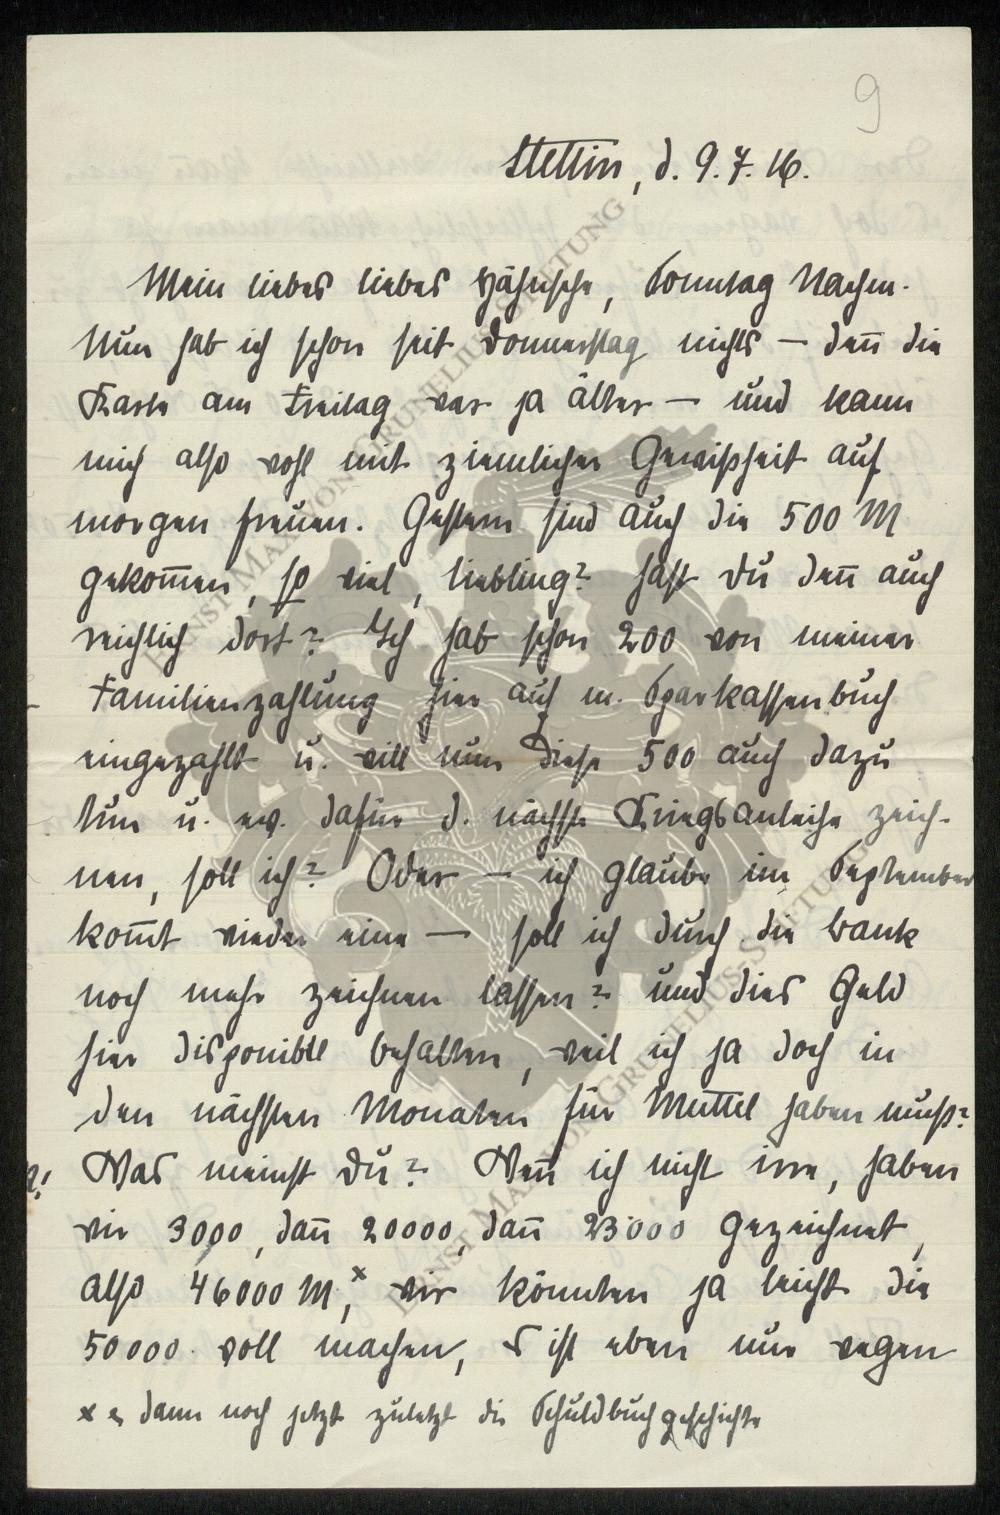 9
Stettin, d. 9.7.16.
Mein liebes liebes Hähnsche, Sonntag Nachm.
Nun hab ich schon seit Donnerstag nichts — den̄ die
Karte am Freitag war ja älter — und kann
mich also wohl mit ziemlicher Gewißheit auf
morgen freuen. Gestern sind auch die 500 M
gekom̄en, so viel, Liebling? Hast Du den̄ auch
reichlich dort? Ich hab schon 200 von meiner
Familienzahlung hier auf m. Sparkassenbuch
eingezahlt u. will nun diese 500 auch dazu
tun u. ev. dafür d. nächste Kriegsanleihe zeich-
nen, soll ich? Oder — ich glaube im September
kom̄t wieder eine — soll ich durch die Bank
noch mehr zeichnen lassen? und dies Geld
hier disponibel behalten, weil ich ja doch in
den nächsten Monaten für Muttel haben muß?
Was meinst Du? Wen̄ ich nicht irre, haben
wir 3000, dan̄ 20000, dan̄ 23000 gezeichnet,
also 46000 M,ˣ wir könnten ja leicht die
50000 voll machen, es ist eben nur wegen
x dann noch jetzt zuletzt die Schuldbuchgeschichte
ERNST MAX VON GRUNELIUS-STIFTUNG
ERNST MAX VON GRUNELIUS-STIFTUNG